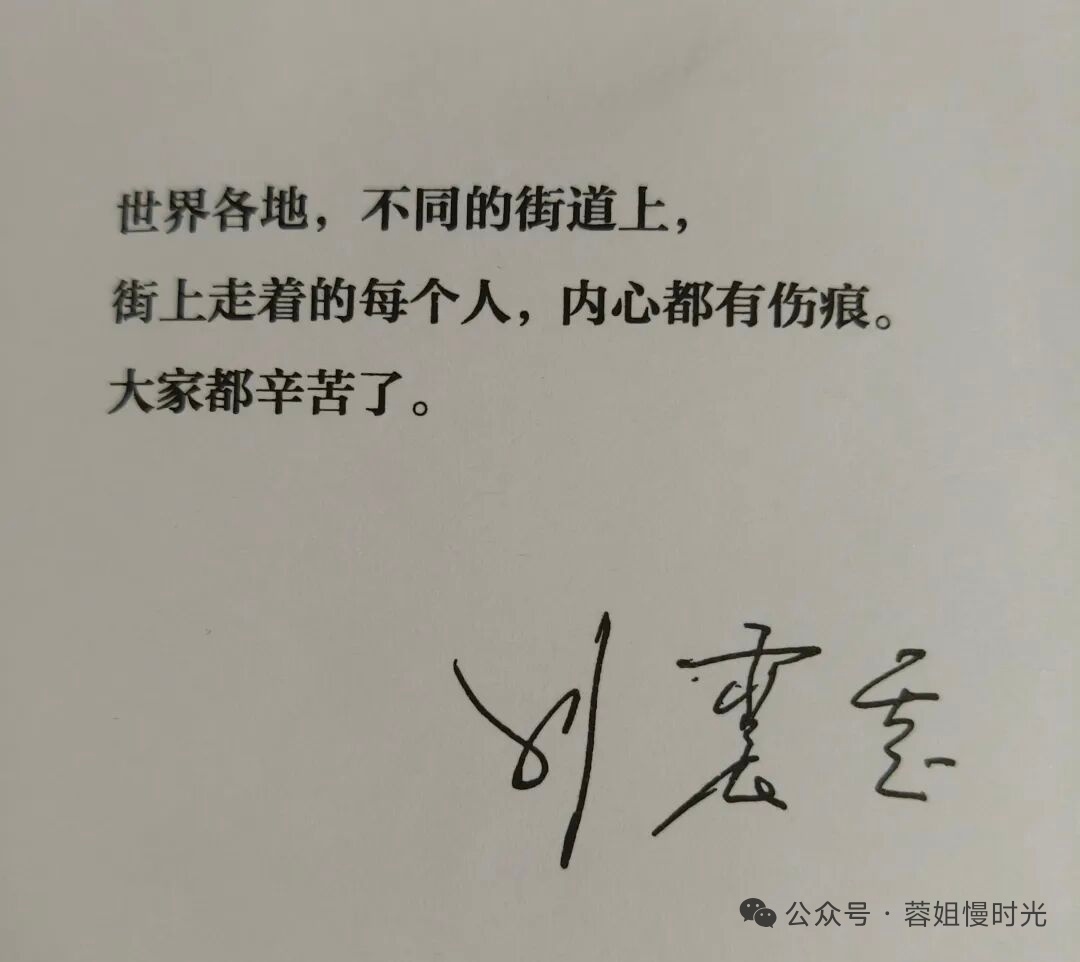 世界各地，不同的街道上，
街上走着的每个人，内心都有伤痕。
大家都辛苦了。
刘震云
公众号 · 蓉姐慢时光